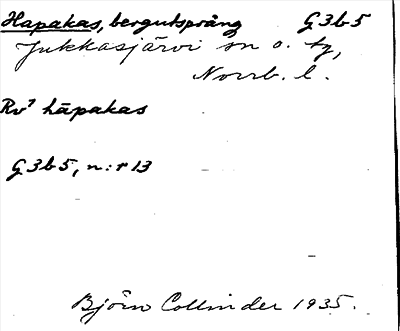 Hapakas, bergutsprång G3b5
Jukkasjärvi sn o. tg,
Norrb. l.
Rv⁷ hāpakas
G3b5, n:r 13
Björn Collinder 1935.